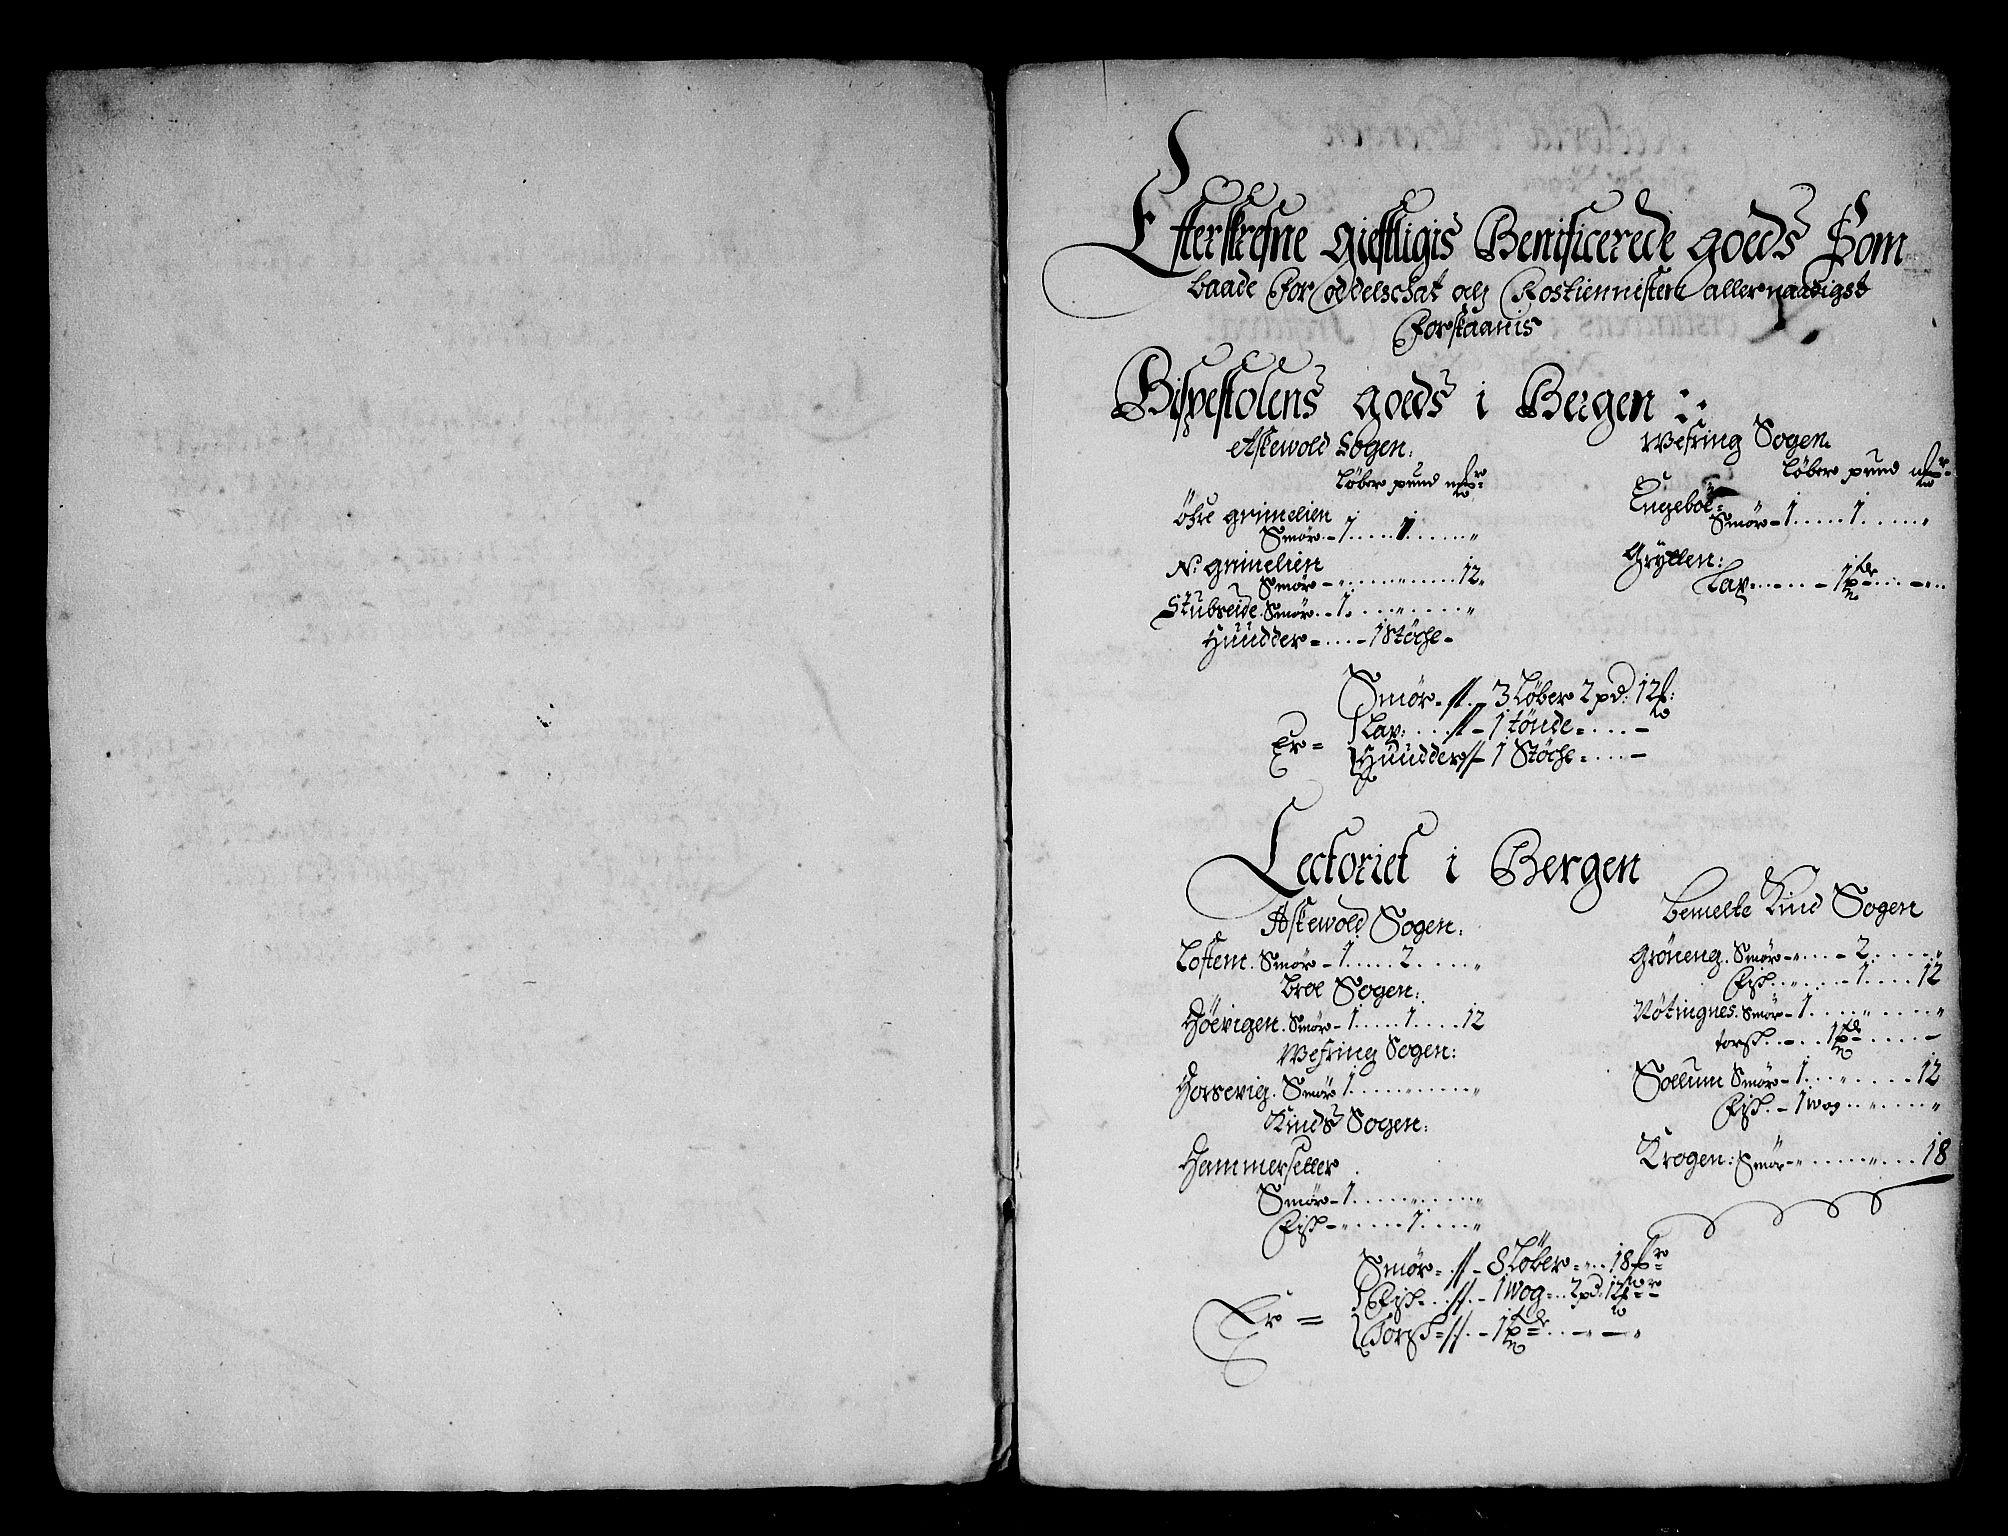 Efterskrefne gieistligis Benificerede goeds Som
baade for oddelschat och Rostienniste allernaadigst
forskaanis
Bispestolens goeds i Bergen
Askewold Sogen:
Løber pund
Öfre grimelien
Smör - 1 . . . . 1 . . . . "
N: grimelien
Smör - " . . . . " . . . . 12 "
Stubseide. Smör - 1. . . . " . . . . "
Huudder - . . . - 1 Støche -
Wefring Sogen.
Løber pund
Engeboe -
Smör - 1 . . . . 1 . . . . "
Grytten:
Smör - // - 3 Løber 2 pd: 12
Er = 1 tønde - . . . -
Huudder // - 1 Støche - . . . -
Lectoriet i Bergen
Askewold Sogen:
Loftem. Smör - 1 . . . . 2 . . . . "
Broe Sogen:
Höevigen. Smör - 1 . . . . 1 . . . . 12
Wefring Sogen:
Horsevig. Smör 1 . . . . " . . . . "
Kinds Sogen:
Hammersetter
Smör - 1 . . . . " . . . . "
Fisk - " . . . . 1 . . . . "
bemelte Kind Sogen
Gröneng. Smör - " . . . - 2 . . . . "
Fisk . . " . . . - 1 . . . . 12
Nötingnes. Smör - 1 . . . . " . . . . "
torsk . . - . . 1
Sollum Smör - 1 . . . " . . . . 12
Fisk . - 1 wog . . " . . . . "
Krogen: Smör - " . . . . " . . . 18
Smör - // - 8 Løber - " . . 18
Er = Fisk - . . // - 1 wog - . . 2 pd: 12
Torsk - // - 1